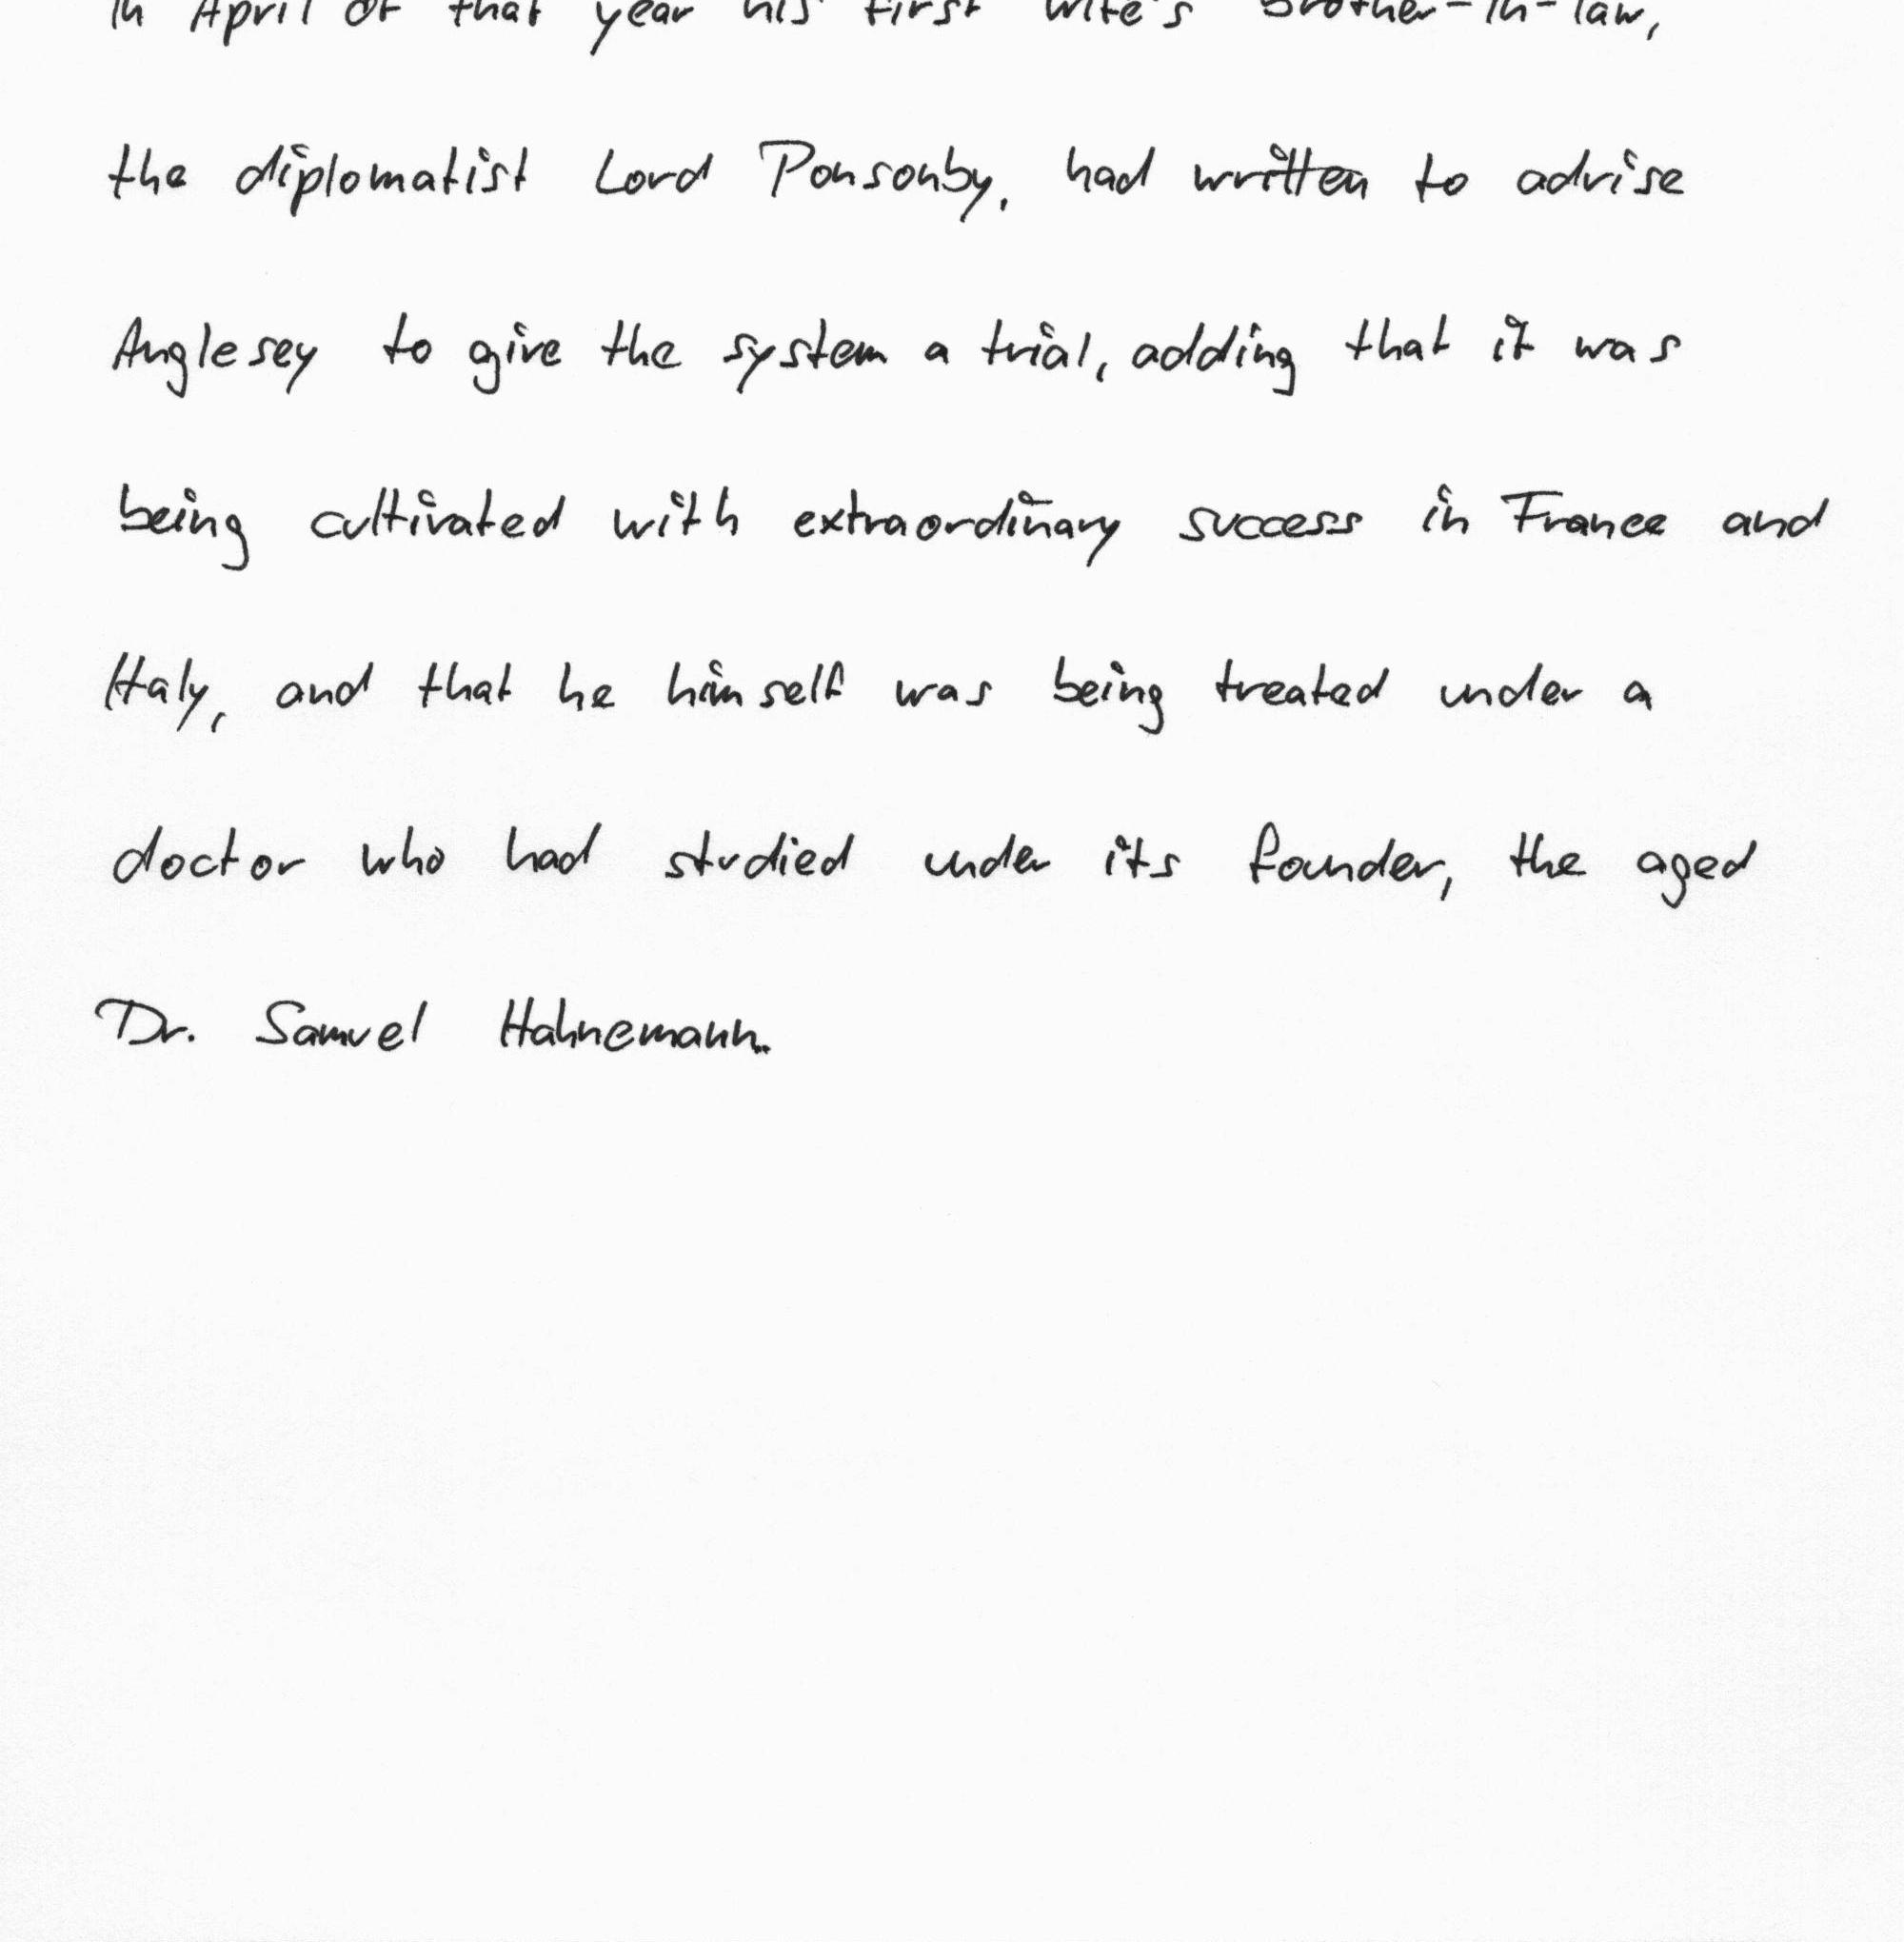 In April of that year his first wife's brother-in-law,
the diplomatist Lord Ponsonby, had written to advise
Anglesey to give the system a trial, adding that it was
being cultivated with extraordinary success in France and
Italy, and that he himself was being treated under a
doctor who had studied under its founder, the aged
Dr. Samuel Hahnemann.